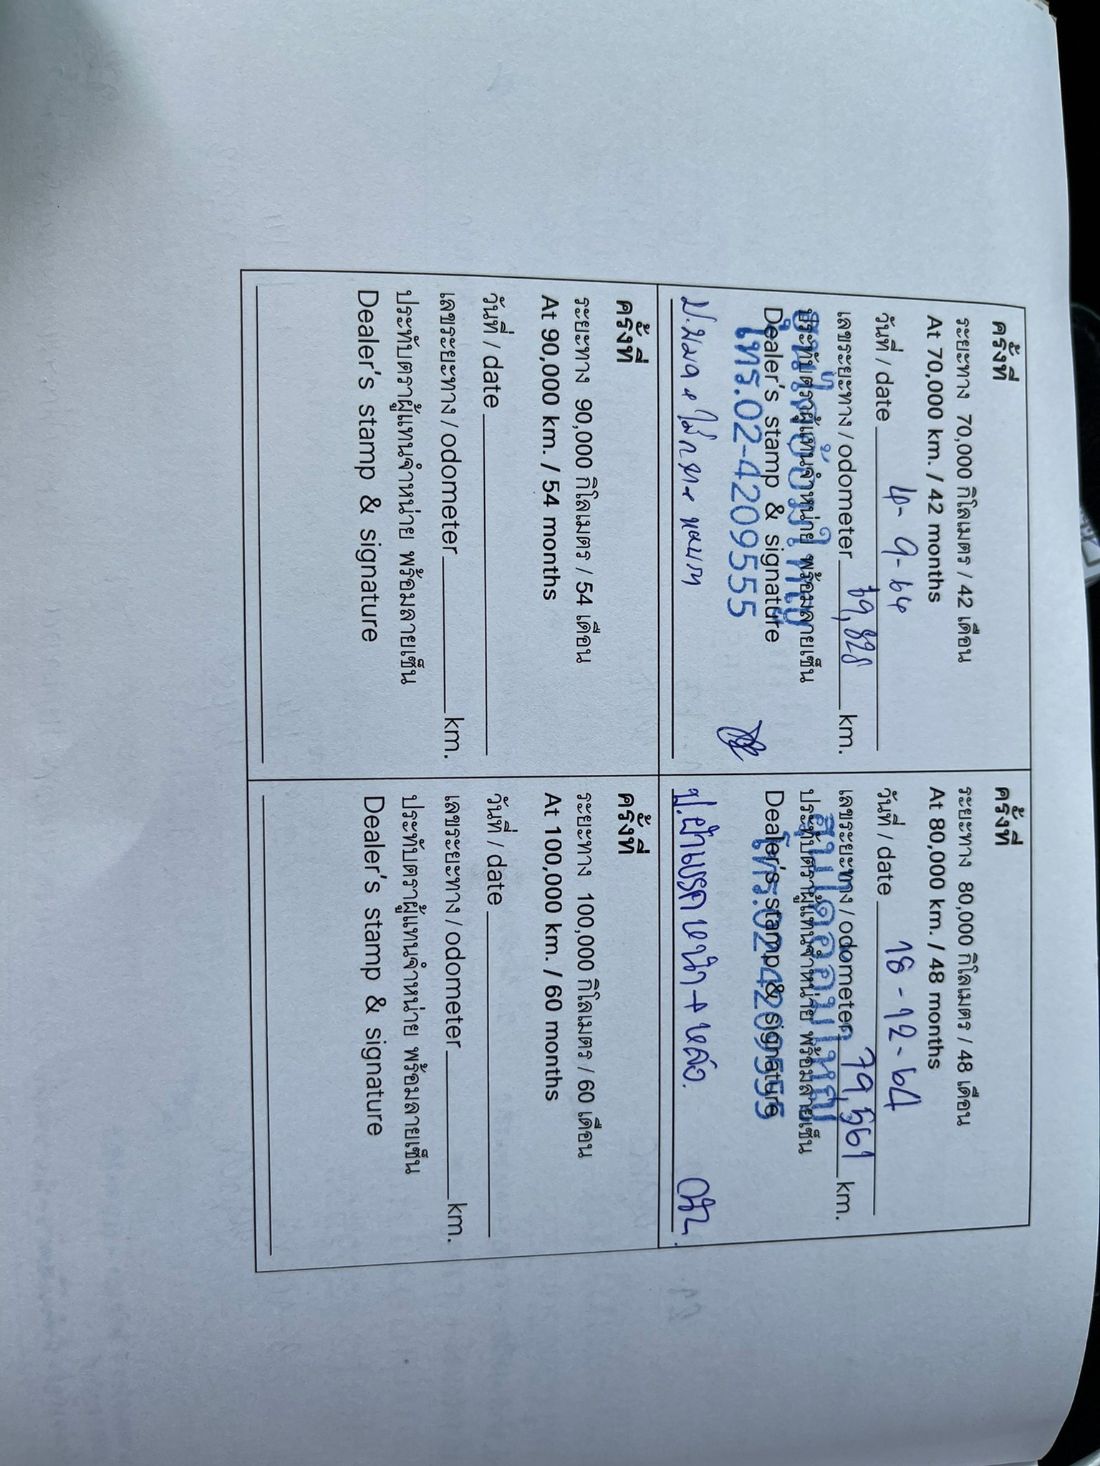 ครั้งที่
ระยะทาง 70,000 กิโลเมตร / 42 เดือน
At 70,000 km. / 42 months
วันที่ / date 4-9-64
เลขระยะทาง / odometer km.
ประทับตราผู้แทนจำหน่าย พร้อมลายเซ็น
Dealer's stamp & signature
โทร.02-4209555
ครั้งที่
ระยะทาง 80,000 กิโลเมตร / 48 เดือน
At 80,000 km. / 48 months
วันที่ / date 18-12-64
เลขระยะทาง / odometer 79,561 km.
ประทับตราผู้แทนจำหน่าย พร้อมลายเซ็น
Dealer's stamp & signature
โทร.02-4209555
ป.ผ้าเบรคหน้า+หลัง.
ครั้งที่
ระยะทาง 90,000 กิโลเมตร / 54 เดือน
At 90,000 km. / 54 months
วันที่ / date
เลขระยะทาง / odometer km.
ประทับตราผู้แทนจำหน่าย พร้อมลายเซ็น
Dealer's stamp & signature
ครั้งที่
ระยะทาง 100,000 กิโลเมตร / 60 เดือน
At 100,000 km. / 60 months
วันที่ / date
เลขระยะทาง / odometer km.
ประทับตราผู้แทนจำหน่าย พร้อมลายเซ็น
Dealer's stamp & signature